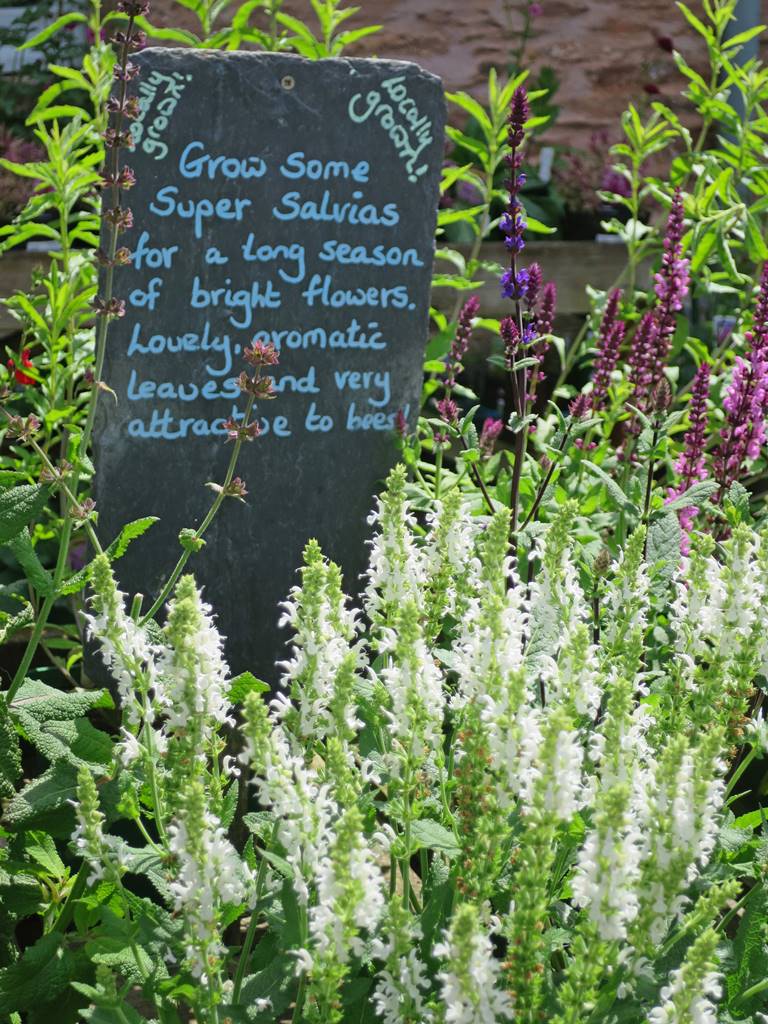 Locally
grown!
Locally
Grown!
Grow Some
Super Salvias
for a long season
of bright flowers.
Lovely, aromatic
leaves and very
attractive to bees!